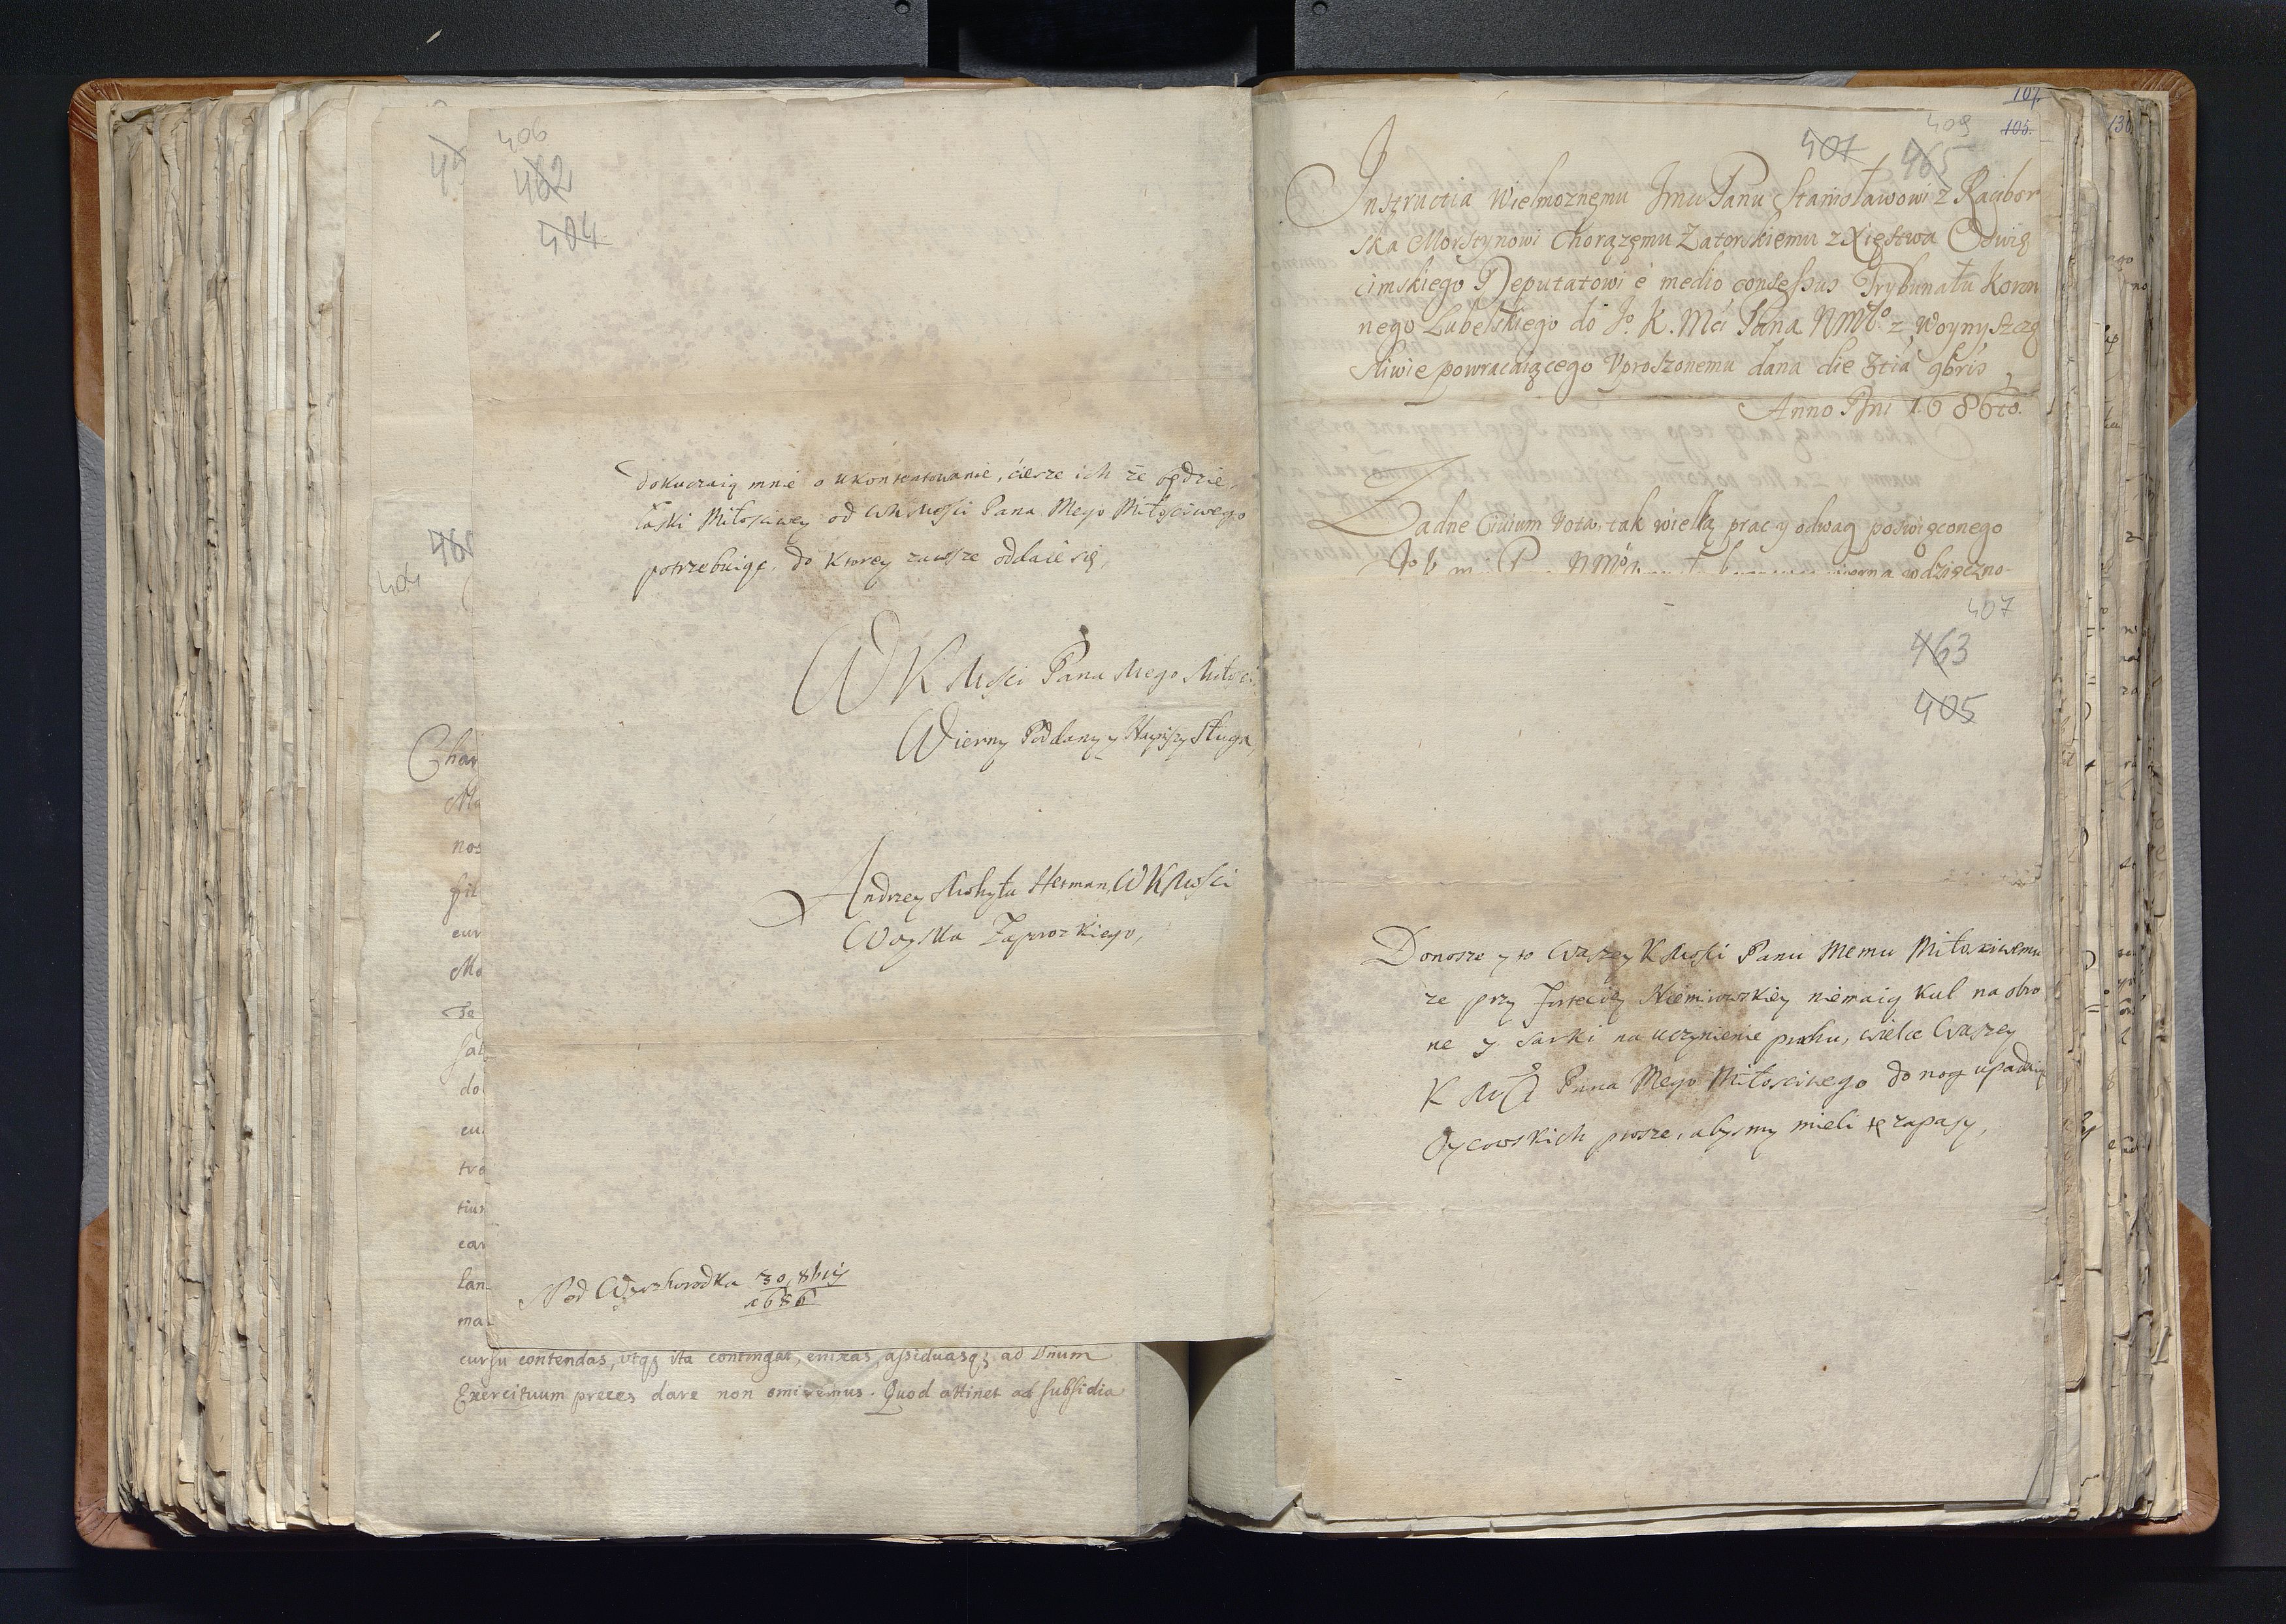 406
462
404
dokuczaią mnie o ukontentowanie, ciesze ich że będzie,
łaski Miłosciwey od WKMosci Pana Mego Miłosciwego
potrzebuiąc, do ktorey zawsze oddaie się,
WKMsci Pana Mego Miłosci
Wierny Poddany y Nayniższy Sługa,
Andrzey Mohyła Hetman WKMosci
Woyska Zaporozkiego,
Pod 30, 8bris
1686
404
Char
Ma
nos
fil
eur
Ma
Te
sal
do
eu
tra
tiur
ear
lan
ma
cursu contendas, utq; ita contingat, enixas, assiduasq; ad Dnum
Exercituum preces dare non omittimus. Quod attinet ad subsidia
107.
105.
409
407
465
Instructia Wielmoznemu Jmci Panu Stanisławowi z Racibor
ska Morstynowi Chorązemu Zatorskiemu z Xięstwa Oswię
cimskiego Deputatowi è medio consessus Trybunału Koron
nego Lubelskiego do Jo. K. Mci Pana NMło z Woyny szczę
sliwie powracaiącego Uproszonemu dana die 3tia 9bris
Anno Dni 1686to.
Zadne Civium Vota, tak wielką prac y odwag poswięconego
wdzięczno-
407
463
405
Donosze y to Waszey KMosci Panu Memu Miłosciwemu
ze przy fortecÿ Niemirowskiey niemaią kul na obro
ne y sarki na uczynienie prochu, wielce Waszey
K Msci Pana Mego Miłosciwego do nog upadaią
Oycowskich prosze, abysmy mieli te zapasy,
130